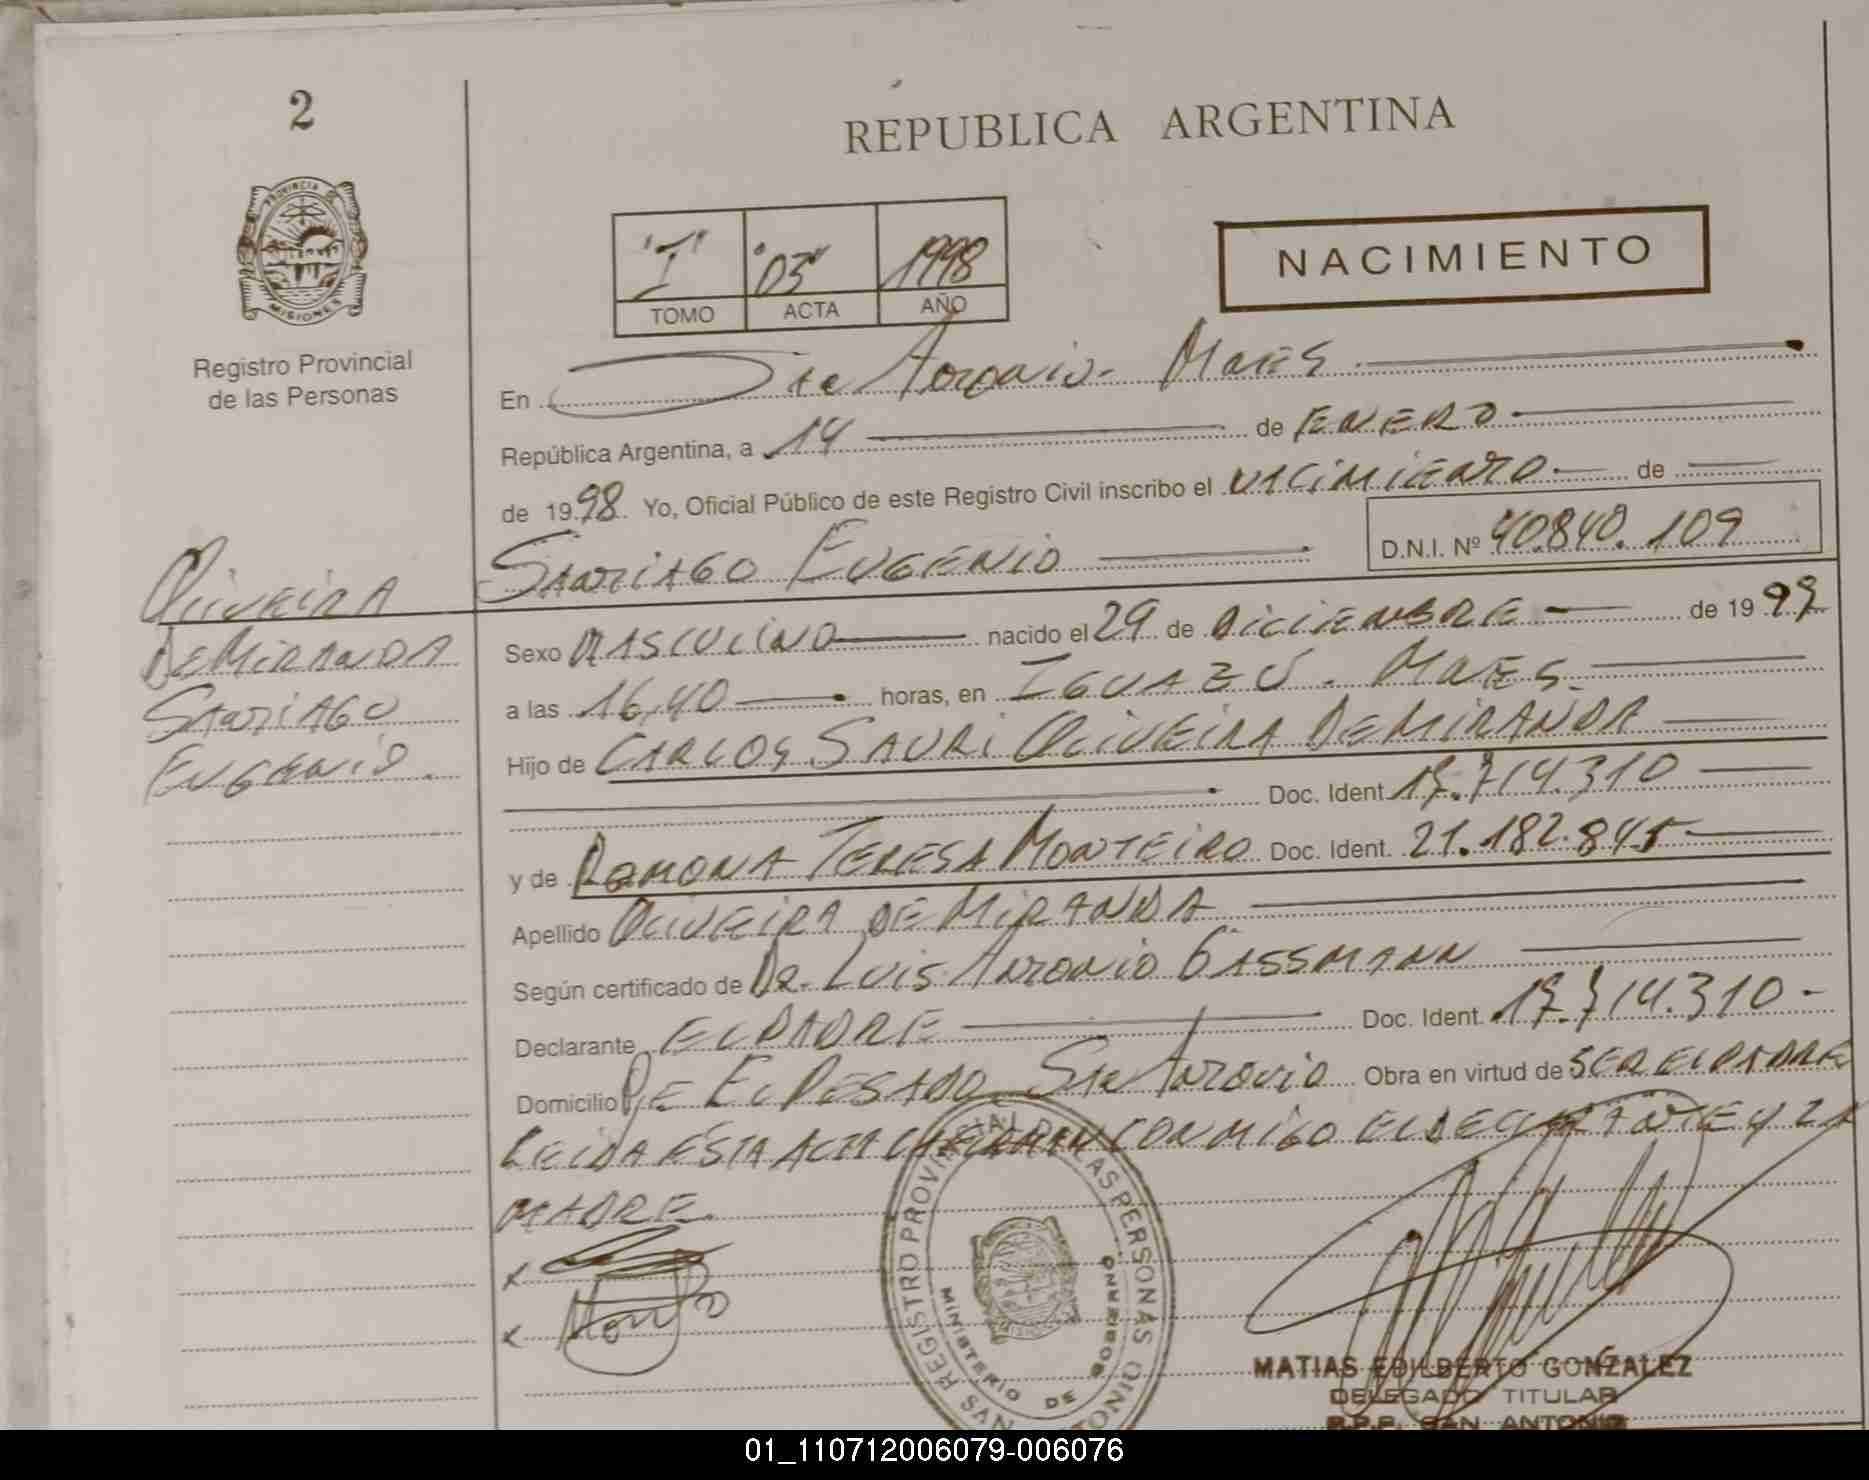 2
REPUBLICA ARGENTINA
PROVINCIA DE
MISIONES
Registro Provincial
de las Personas
"I" "03" 1998
TOMO ACTA AÑO
NACIMIENTO
En San Antonio - Mnes
República Argentina, a 14 de ENERO
de 1998. Yo, Oficial Público de este Registro Civil inscribo el NACIMIENTO de
SANTIAGO EUGENIO D.N.I. Nº 40.840.109
OLIVEIRA
DE MIRANDA
SANTIAGO
EUGENIO.
Sexo MASCULINO nacido el 29 de DICIIEMBRE de 1997
a las 16,40 horas, en IGUAZÚ - MNES.
Hijo de CARLOS SAURI OLIVEIRA DE MIRANDA
Doc. Ident. 17.714.310
y de RAMONA TERESA MONTEIRO Doc. Ident. 21.182.845
Apellido OLIVEIRA DE MIRANDA
Según certificado de Dr. LUIS ANTONIO GASSMANN
Declarante EL PADRE Doc. Ident. 17.714.310.-
Domicilio PJE EL PESADO SAN ANTONIO Obra en virtud de SER EL PADRE
LEIDA ESTA ACTA LA FIRMAN CONMIGO EL DECLARANTE Y LA
MADRE.
x
x
REGISTRO PROVINCIAL DE LAS PERSONAS
MINISTERIO DE GOBIERNO
MISIONES
SAN ANTONIO
MATIAS EDILBERTO GONZALEZ
DELEGADO TITULAR
R.P.P. SAN ANTONIO
01_110712006079-006076